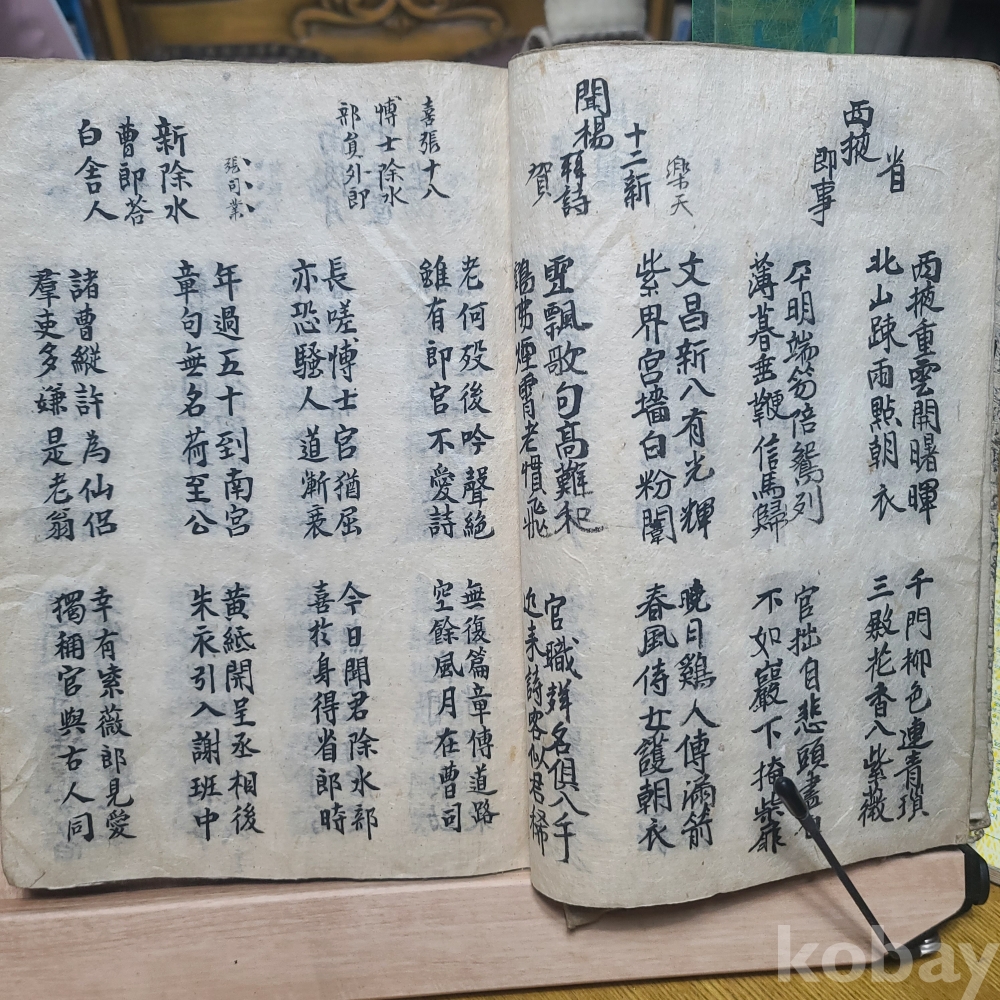 西掖
省
即事
西掖重雲開曙暉
北山疎雨點朝衣
千門柳色連青瑣
三殿花香入紫薇
平明端笏陪鴛列
薄暮垂鞭信馬歸
官拙自悲頭盡
不如巖下掩柴扉
聞楊
十二新
拜詩
賀
樂天
文昌新入有光輝
紫界宮墻白粉闈
曉日鷄人傳漏箭
春風侍女護朝衣
雪飄歌句高難和
鶴拂煙霄老慣飛
官職聲名俱入手
近來詩客似君稀
喜張十八
愽士除水
部員外郎
老何歿後吟聲絕
雖有郎官不愛詩
無復篇章傳道路
空餘風月在曹司
長嗟愽士官猶屈
亦恐騷人道漸衰
今日聞君除水部
喜於身得省郎時
新除水
曹郎荅
白舍人
張司業
年過五十到南宮
章句無名荷至公
黃紙開呈丞相後
朱衣引入謝班中
諸曹縱許為仙侶
羣吏多嫌是老翁
幸有紫薇郎見愛
獨稱官與古人同
kobay